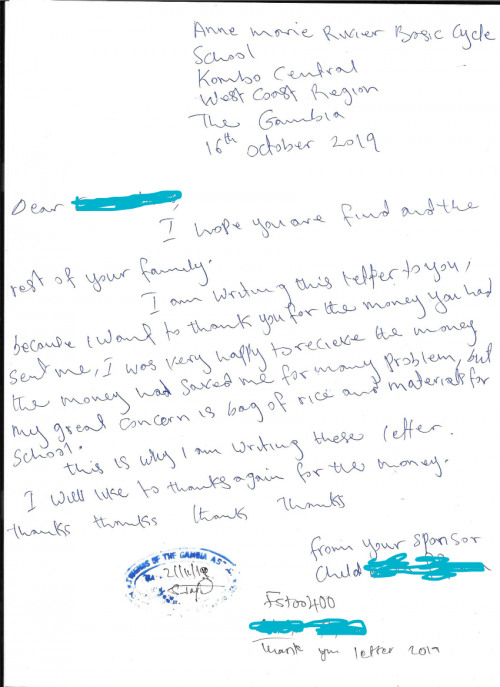 Anne Marie Rivier Basic Cycle
School
Kombo Central
West Coast Region
The Gambia
16th October 2019
Dear
I hope you are find and the
rest of your family.
I am writing this letter to you,
because I want to thank you for the money you had
sent me, I was very happy to recieve the money
the money had saved me for many problem, but
my great concern is bag of rice and materials for
school.
this is why I am writing these letter.
I will like to thanks again for the money.
thanks thanks thank thanks
from your sponsor
child
OF THE GAMBIA
Thank you letter 2019